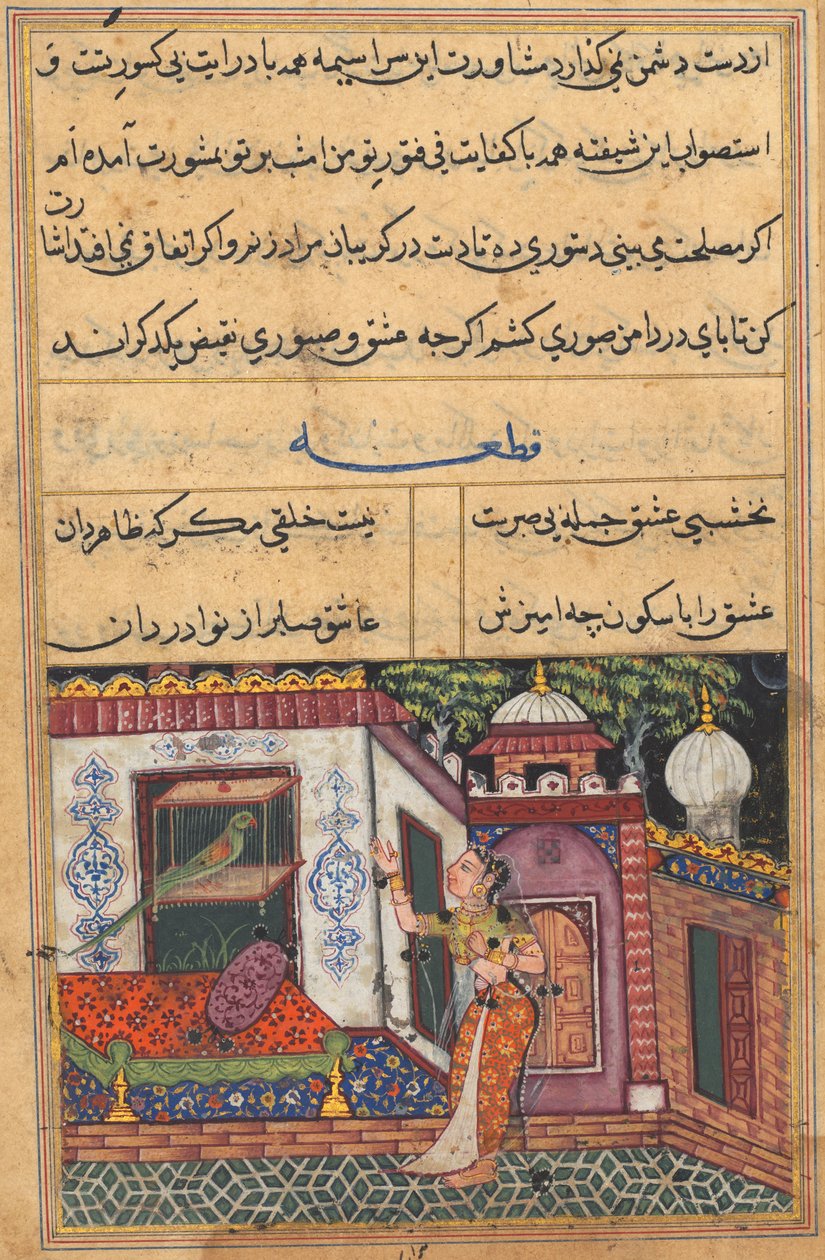 از دست دشمن نمی گذارد مشاورت این سراسیمه همه با درایت بی کسور تست و
استصواب این شیفته همه با کفایت فی فتور تو من امشب بر تو بمشورت آمده ام
اکر مصلحت می بینی دستوری ده تا دست در کریبان مراد زنم و اکر اتفاق نمی افتد اشارت
کن تا پای در دامن صبوری کشم اکر جه عشق و صبوری نقیض یکد کراند
قطعه
نخشبی عشق جمله بی صبرست
نیست خلقی مکر که ظاهر دان
عشق را با سکون چه امیزش
عاشق صابر از نوادر دان